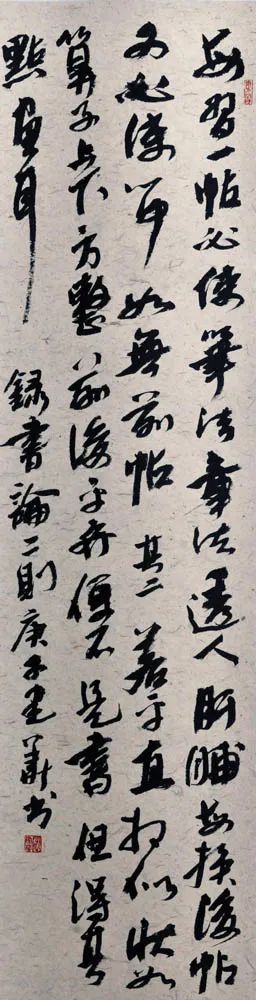 每習一帖必使筆法章法透入肝膈每換後帖
又必使中如無前帖 其二 若平直相似狀如
算子上下方整前後平齊便不是書但得其
點畫耳 録書論二則庚子書